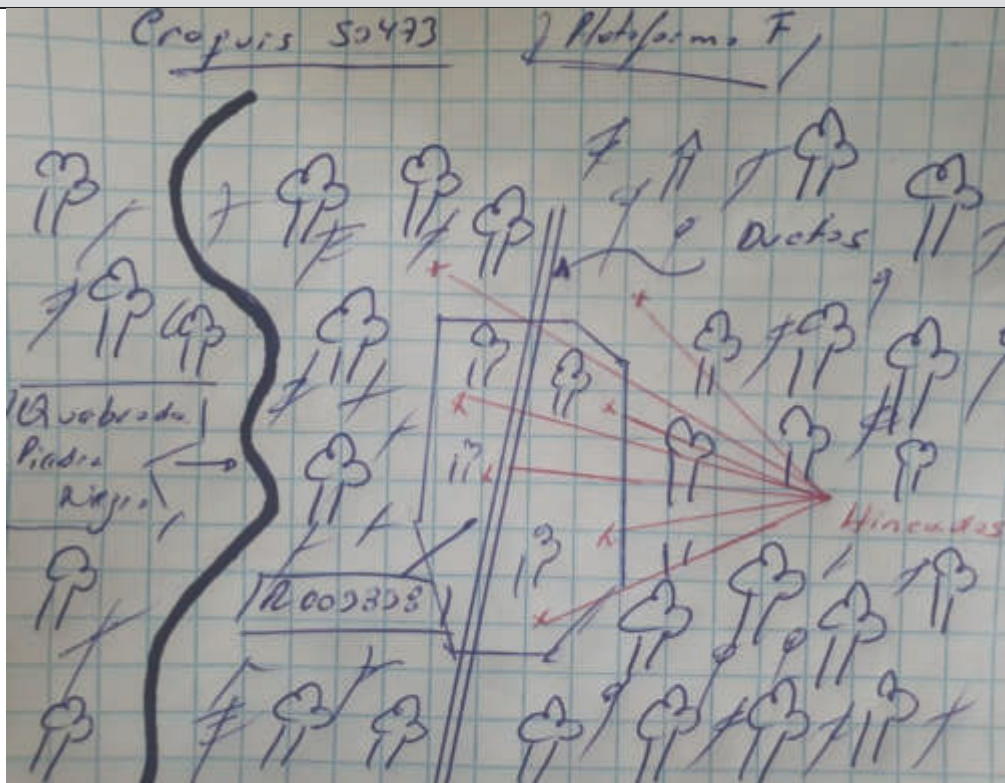 Croquis S0473
Plataforma F
Ductos
Quebrada
Piedra
Negra
R003398
Hincados